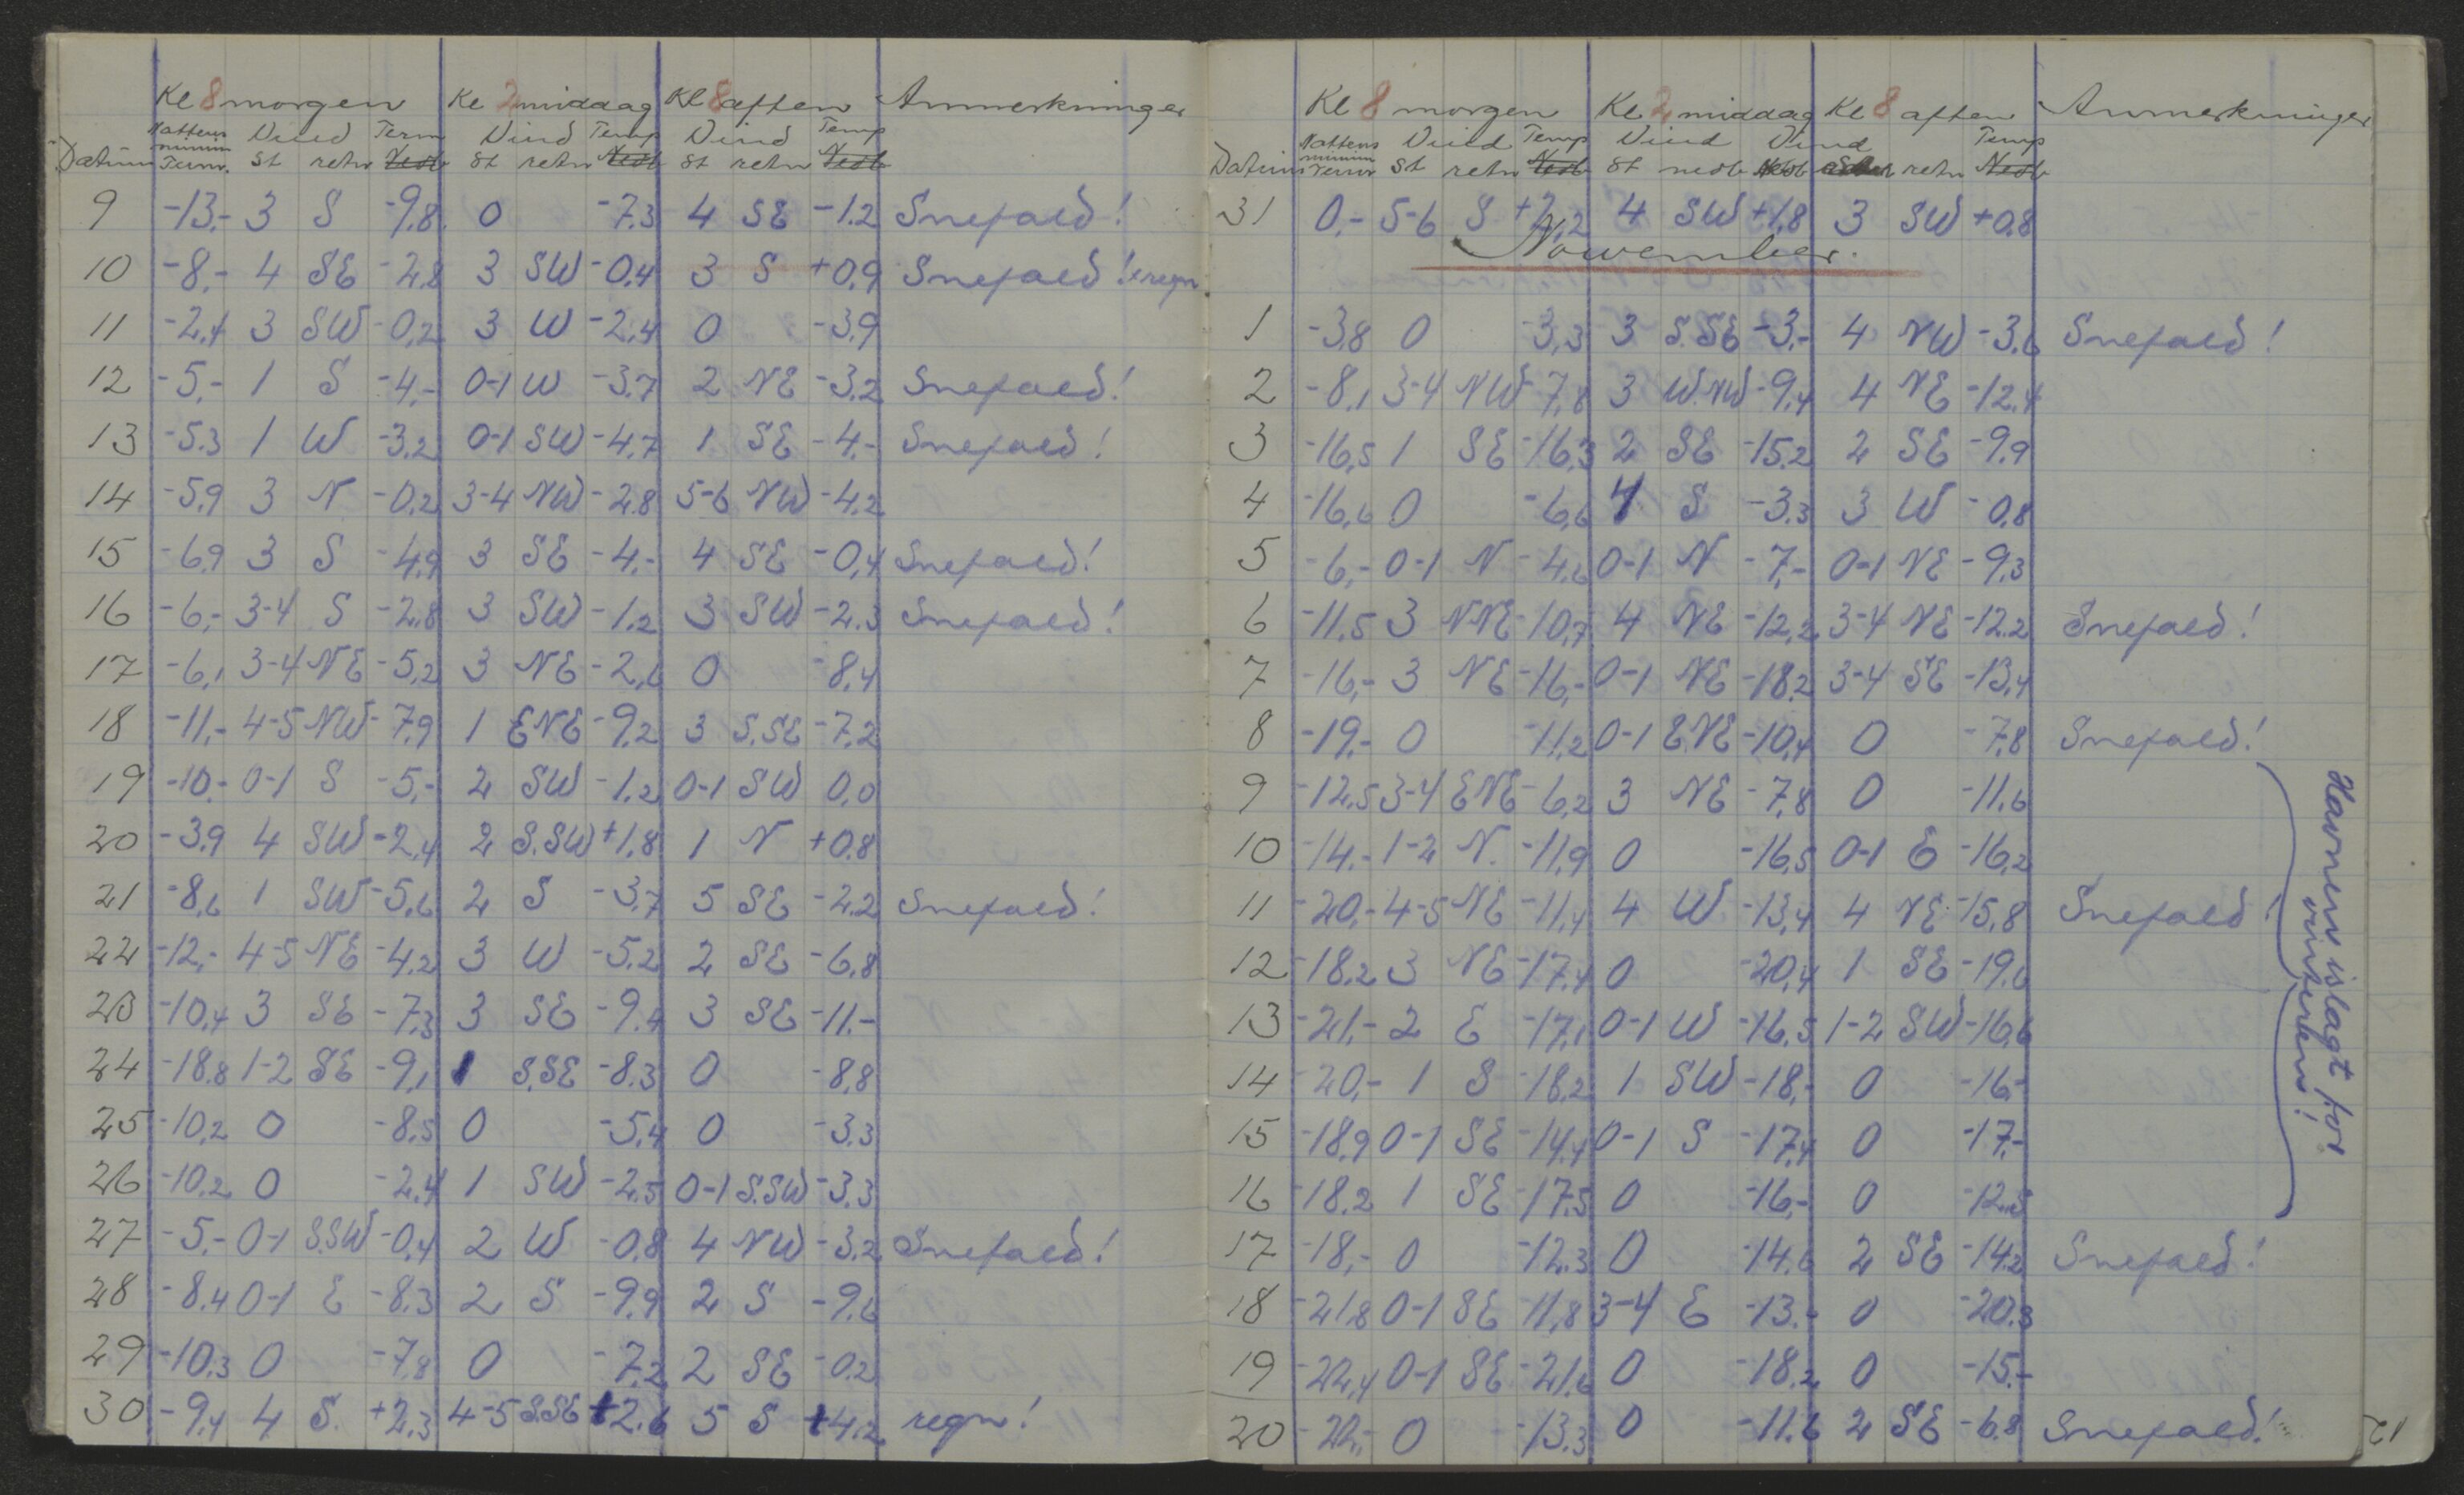 Kl 8 morgen Kl 2 middag Kl 8 aften Anmerkninger
Nattens Vind Term Vind Temp Vind Temp
minimum
Datum Tem. st retn Nedb st retn Nedb st retn Nedb
9 -13,- 3 S -9,8 0 -7,3 4 SE -1.2 Snefald!
10 -8,- 4 SE -2,8 3 SW -0,4 3 S +0,9 Snefald! regn
11 -2,4 3 SW -0,2 3 W -2,4 0 -3,9
12 -5,- 1 S -4,- 0-1 W -3,7 2 NE -3,2 Snefald!
13 -5.3 1 W -3,2 0-1 SW -4,7 1 SE -4,- Snefald!
14 -5,9 3 N -0,2 3-4 NW -2,8 5-6 NW -4,2
15 -6,9 3 S -4,9 3 SE -4,- 4 SE -0,4 Snefald!
16 -6,- 3-4 S -2,8 3 SW -1,2 3 SW -2,3 Snefald!
17 -6,1 3-4 NE -5,2 3 NE -2,6 0 -8,4
18 -11,- 4-5 NW -7,9 1 ENE -9,2 3 S.SE -7,2
19 -10,- 0-1 S -5,- 2 SW -1,2 0-1 SW 0,0
20 -3,9 4 SW -2,4 2 S.SW +1,8 1 N +0,8
21 -8,6 1 SW -5,6 2 S -3,7 5 SE -2,2 Snefald!
22 -12,- 4-5 NE -4,2 3 W -5,2 2 SE -6,8
23 -10,4 3 SE -7,3 3 SE -9,4 3 SE -11,-
24 -18,8 1-2 SE -9,1 1 S.SE -8,3 0 -8,8
25 -10,2 0 -8,5 0 -5,4 0 -3,3
26 -10,2 0 -2,4 1 SW -2,5 0-1 S.SW -3,3
27 -5,- 0-1 S.SW -0,4 2 W -0,8 4 NW -3,2 Snefald!
28 -8,4 0-1 E -8,3 2 S -9,9 2 S -9,6
29 -10,3 0 -7,8 0 -7,2 2 SE -0,2
30 -9,4 4 S. +2,3 4-5 S.SE +2,6 5 S +4,2 regn!
Kl 8 morgen Kl 2 middag Kl 8 aften Anmerkninger
Nattens Vind Temp Vind Vind Temp
minimum
Datum Tem st retn Nedb st nedb Nedb retn Nedb
31 0,- 5-6 S +2,2 4 SW +1,8 3 SW +0,8
Nowember.
1 -3,8 0 -3,3 3 S.SE -3,- 4 NW -3,6 Snefald!
2 -8,1 3-4 NW -7,8 3 W.NW -9,4 4 NE -12,4
3 -16,5 1 SE -16,3 2 SE -15,2 2 SE -9,9
4 -16,6 0 -6,6 4 S -3,3 3 W -0,8
5 -6,- 0-1 N -4,6 0-1 N -7,- 0-1 NE -9,3
6 -11,5 3 N.NE -10,7 4 NE -12,2 3-4 NE -12,2 Snefald!
7 -16,- 3 NE -16,- 0-1 NE -18,2 3-4 SE -13,4
8 -19,- 0 -11,2 0-1 E.NE -10,4 0 -7,8 Snefald!
9 -12,5 3-4 ENE -6,2 3 NE -7,8 0 -11,6
10 -14,- 1-2 N. -11,9 0 -16,5 0-1 E -16,2
11 -20,- 4-5 NE -11,4 4 W -13,4 4 NE -15,8 Snefald!
12 -18,2 3 NE -17,4 0 -20,4 1 SE -19,6
13 -21,- 2 E -17,1 0-1 W -16,5 1-2 SW -16,6
14 -20,- 1 S -18,2 1 SW -18,- 0 -16,-
15 -18,9 0-1 SE -14,4 0-1 S -17,4 0 -17,-
16 -18,2 1 SE -17,5 0 -16,- 0 -12,5
17 -18,- 0 -12,3 0 -14,6 2 SE -14,2 Snefald!
18 -21,8 0-1 SE -11,8 3-4 E -13,- 0 -20,3
19 -22,4 0-1 SE -21,6 0 -18,2 0 -15,-
20 -22,- 0 -13,3 0 -11,6 2 SE -6,8 Snefald!
Havnen islagt for
vinteren!
12